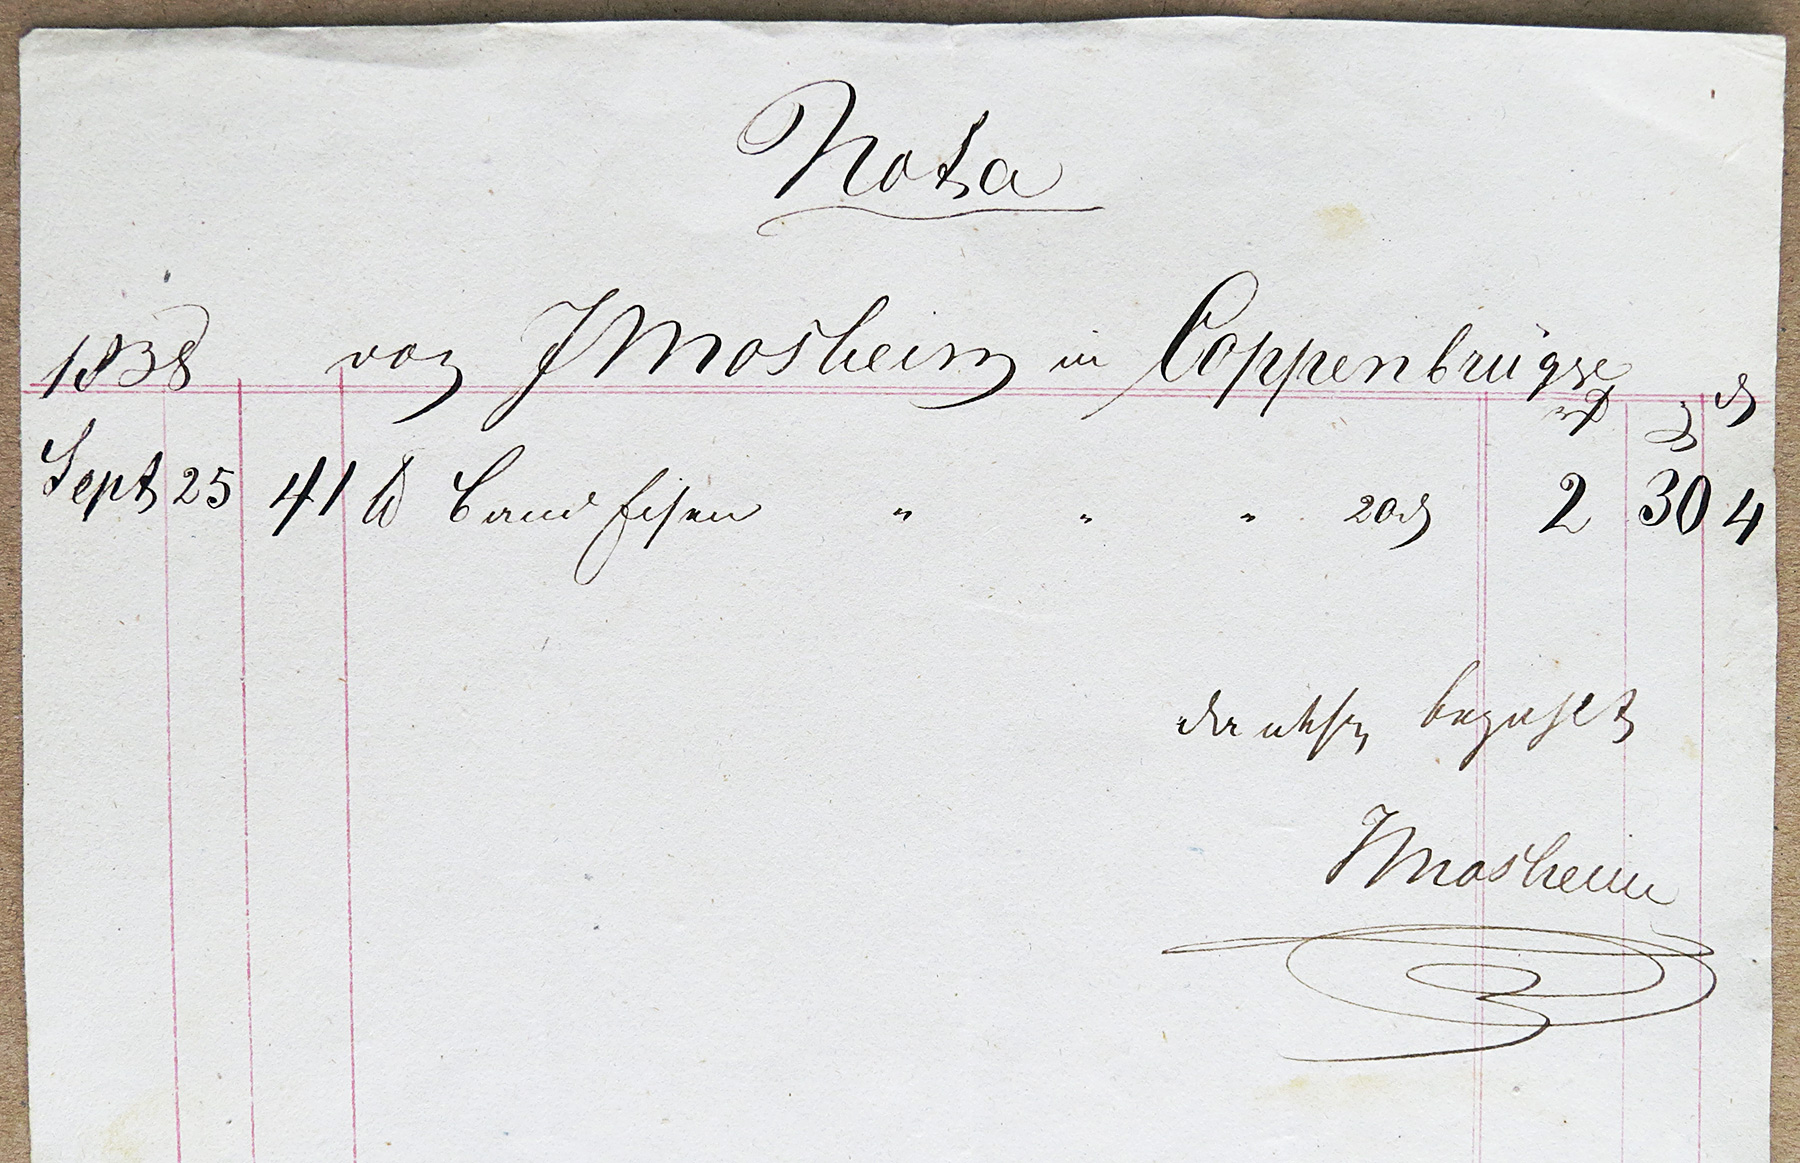 Nota
1838 von J Mosheim in Coppenbrügge
Sept 25 41 ℔ Band Eisen " " " 20 ₰ 2 30 4
bezahlt
J Mosheim